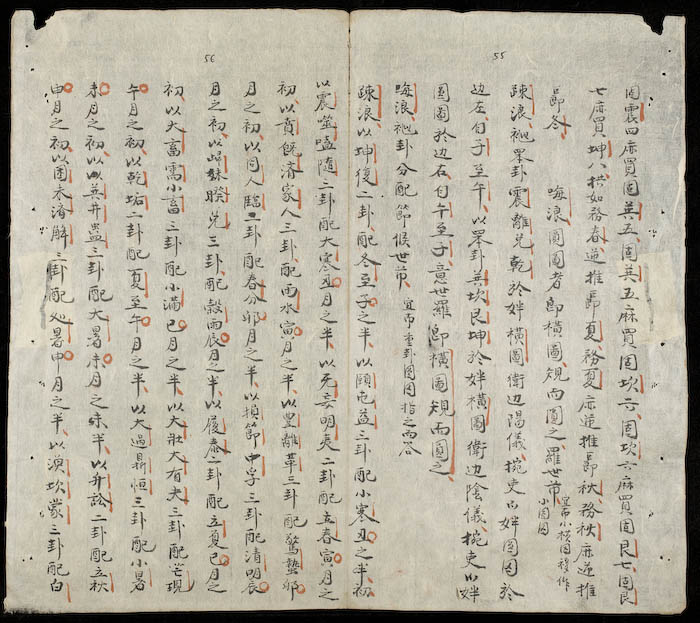 55
固震四麻買固巽五、固巽五麻買固坎六、固坎六麻買固艮七、固艮
七麻買坤八、拱如務春逆推𦤾夏、務夏麻逆推𦤾秋、務秋麻逆推
𦤾冬、 圓圖者、即橫圖規而圓之、羅世 小圓圖
疎浪、卦震離兌乾於姅橫圖衛边陽儀、捥吏姅圓圖於
边左自子至午、以卦巽坎艮坤於姅橫圖衛边陰儀、捥吏姅
圓圖於边右自午至子、意世羅即橫圖規而圓之、
浪、卦分配節候世 重卦圓圖指之而答
疎浪、以坤復二卦配冬至子之半、以頤屯益三卦配小寒丑之半初
56
以震噬嗑隨三卦配大寒丑月之半、以无妄明夷二卦配立春寅月之
初、以賁既濟家人三卦、配雨水寅月之半、以豐離革三卦配驚蟄卯
月之初、以同人臨二卦配春分卯月之半、以損節中孚三卦配清明辰
月之初、以歸妹睽兌三卦、配穀雨辰月之半、以履泰二卦配立夏巳月之
初、以大畜需小畜三卦配小滿巳月之半、以大壯大有夬三卦配芒現
午月之初、以乾姤二卦配夏至午月之半、以大過鼎恒三卦配小暑
未月之初、以巽井蠱三卦配大暑未月之半、以升訟二卦配立秋
申月之初、以困未濟解三卦配処暑申月之半、以渙坎蒙三卦配白